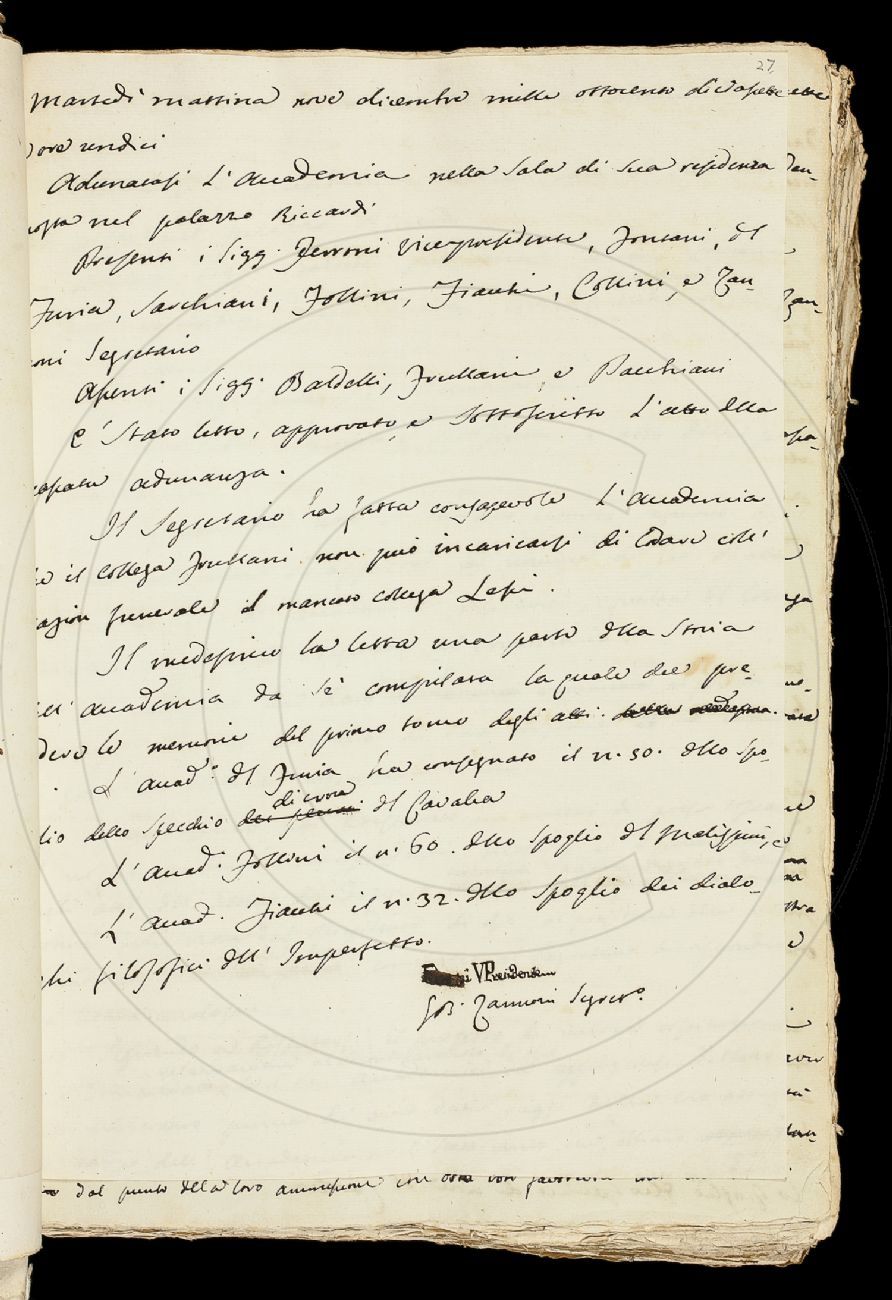 27.
Martedì mattina nove dicembre mille ottocento diciassette
ore undici
Adunatasi l'Accademia nella Sala di sua residenza
nel palazzo Riccardi
Presenti i Sigg. Ferroni Vicepresidente, Fontani, del
Furia, Sarchiani, Follini, Fiacchi, Collini, e Zan-
oni Segretario
Assenti i Sigg. Baldelli, Frullani, e Pacchiani
E' stato letto, approvato, e sottoscritto l'atto della
passata adunanza.
Il Segretario ha fatta consapevole l'Accademia
il collega Frullani non può incaricarsi di lodare coll'
funerale il mancato collega Lessi.
Il medesimo ha letta una parte della Storia
Accademia da sè compilata la quale dee pre-
le memorie del primo tomo degli atti.
L'Accad.o del Furia ha consegnato il n. 50. dello Spo-
lio dello Specchio di croce del Cavalca
L'Accad. Follini il n. 60. dello Spoglio del
L'Accad. Fiacchi il n. 32. dello Spoglio dei dialo-
ghi filosofici dell'Imperfetto.
VPresidente
GB. Zannoni Segret.o
dal punto della loro ammissione